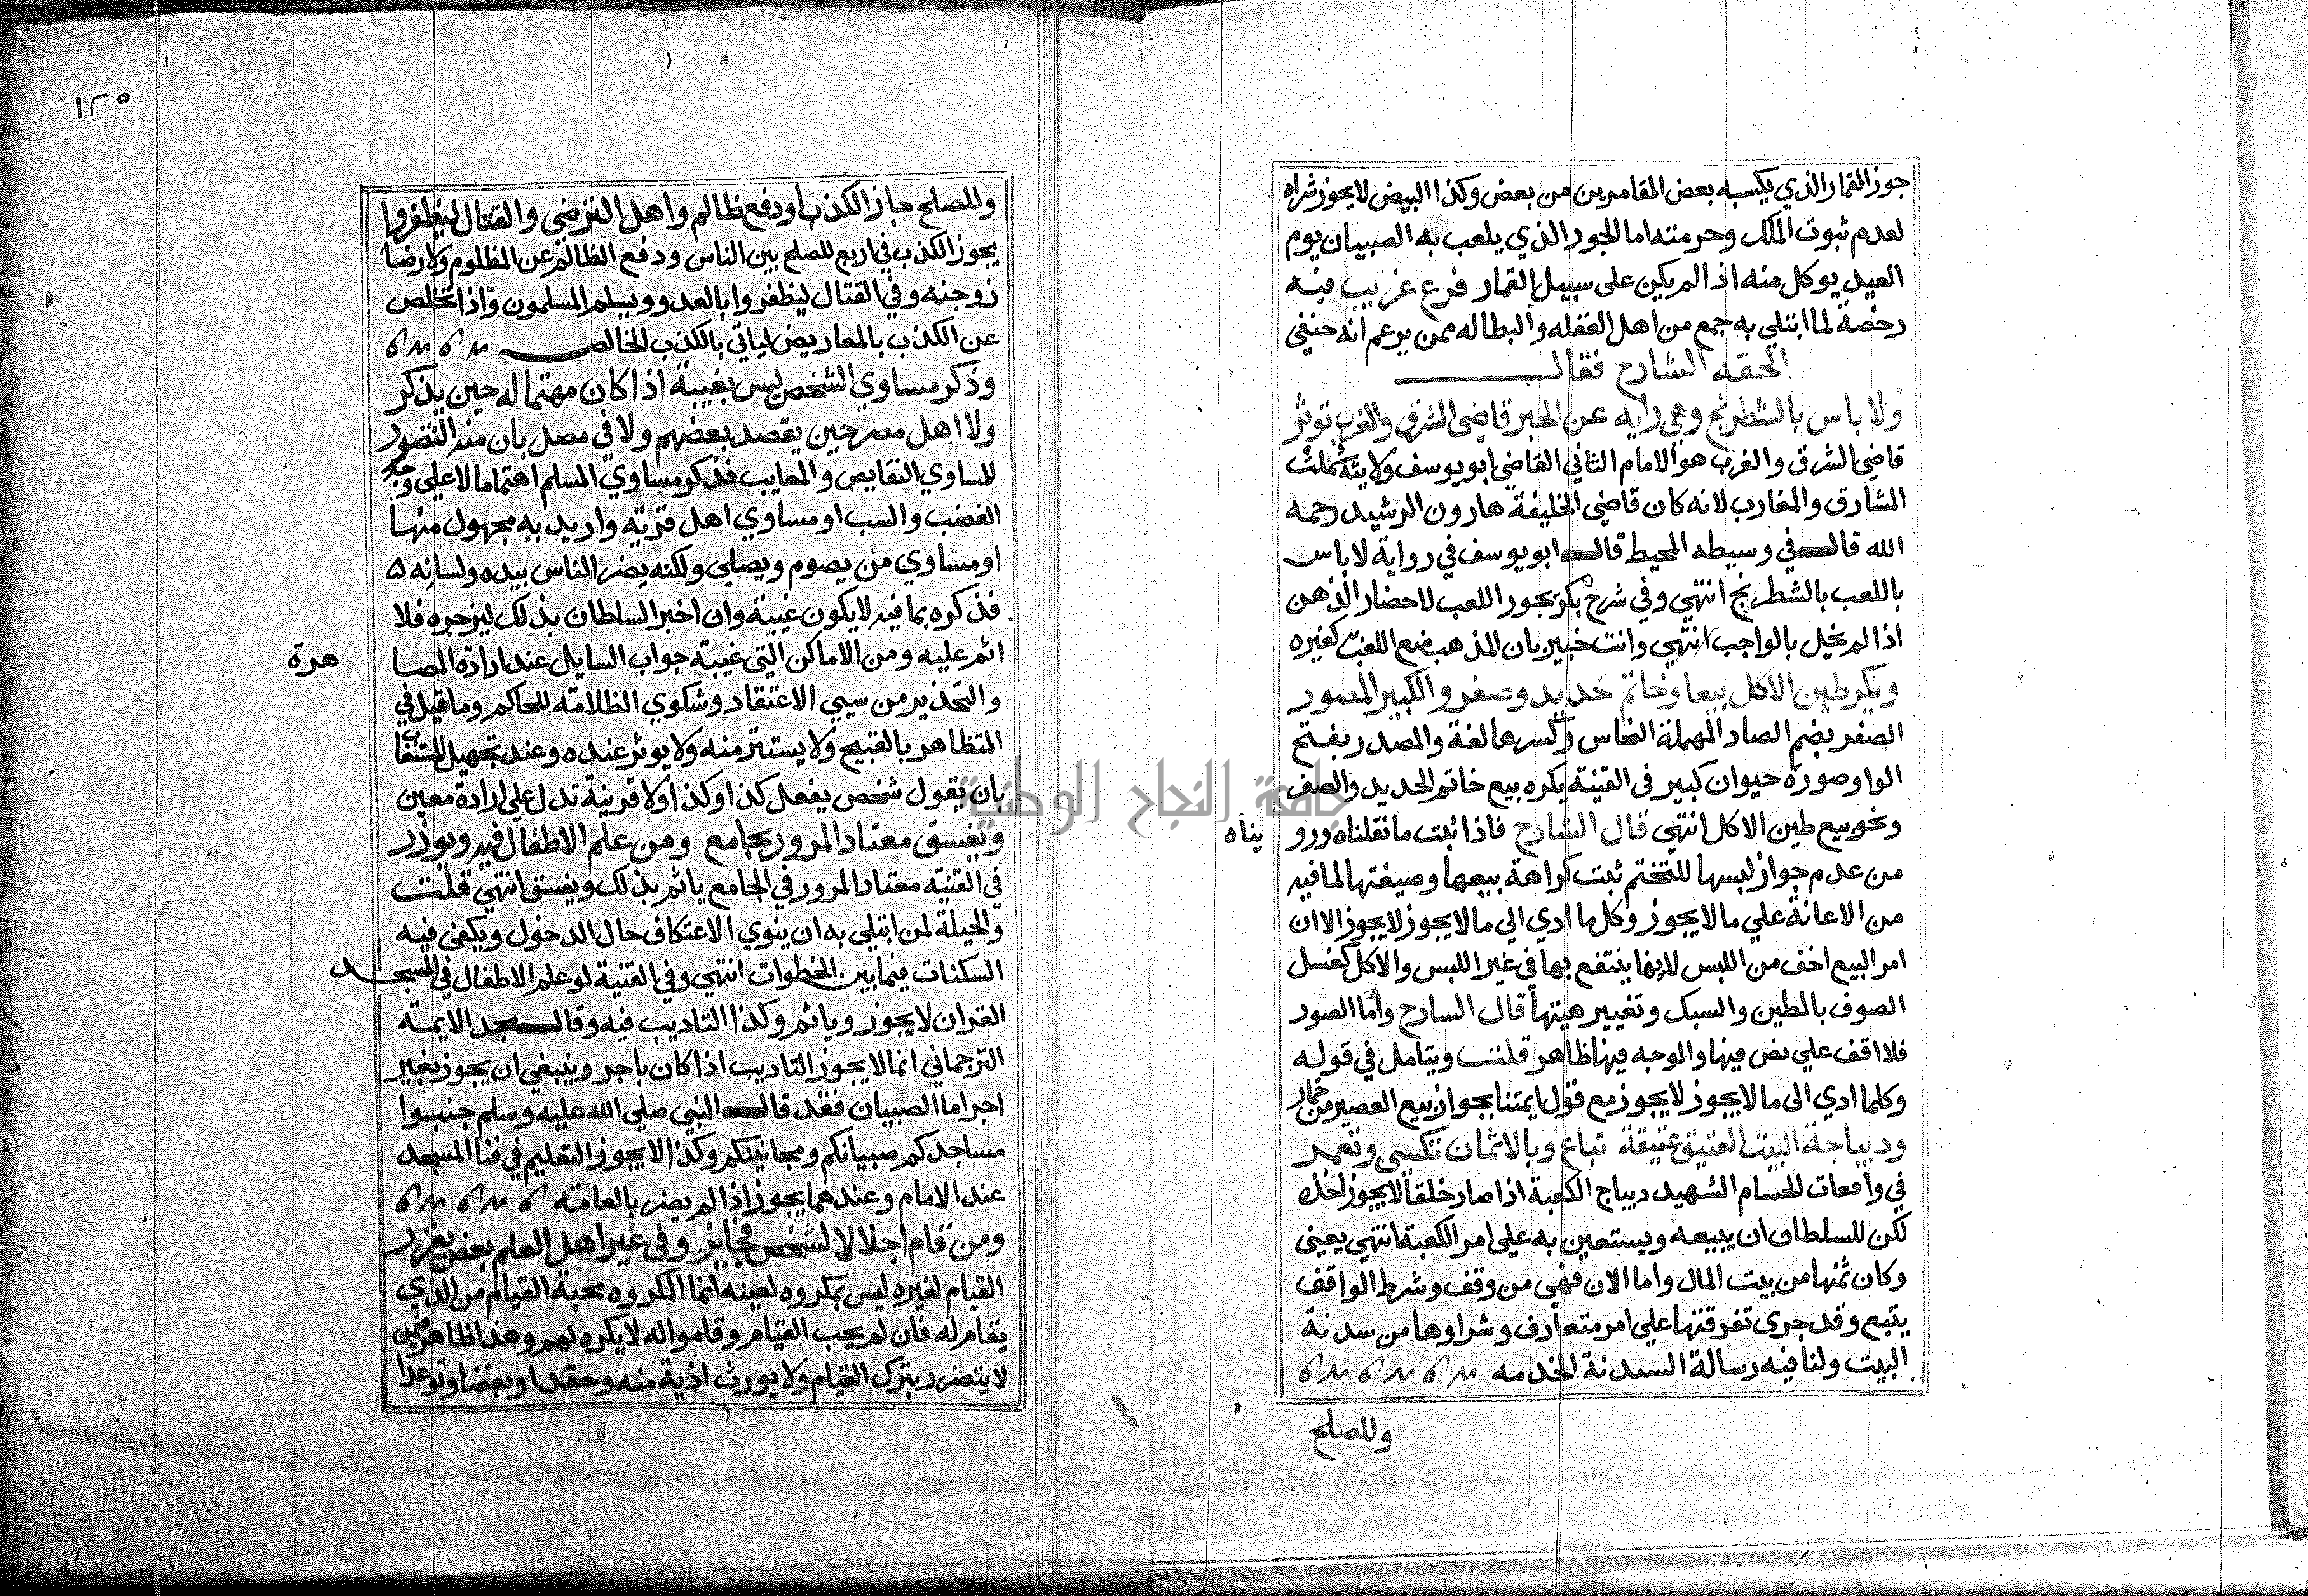 جوز القمار الذي يكسبه بعض المقامرين من بعض وكذا البيض لا يجوز شراه
لعدم ثبوت الملك وحرمته اما الجوز الذي يلعب به الصبيان يوم
العيد يوكل منه اذا لم يكن على سبيل القمار فرع غريب فيه
رخصة لما ابتلي به جمع من اهل الغفله والبطاله ممن يزعم انه حنفي
الحقه الشارح فقال
ولا باس بالشطرنج وهي رايه عن الحبر قاضي الشرق والغرب توثر
قاضي الشرق والغرب هو الامام الثاني القاضي ابو يوسف ولايته شملت
المشارق والمغارب لانه كان قاضي الخليفة هارون الرشيد رحمه
الله قال في وسيطه المحيط قال ابو يوسف في رواية لا باس
باللعب بالشطرنج انتهي وفي شرح بكر يجوز اللعب لاحضار الذهن
اذا لم يخل بالواجب انتهي وانت خبير بان المذهب منع اللعب كغيره
ويكره طين الاكل بيعا وخاتم حديد وصفر والكبير المصور
الصفر بضم الصاد المهملة النحاس وكسرها لغة والمصدر بفتح
الواو صورة حيوان كبير في القنية يكره بيع خاتم الحديد والصفر
ونحو بيع طين الاكل انتهي قال الشارح فاذا ثبت ما نقلناه ورو يناه
من عدم جواز لبسها للتختم ثبت كراهة بيعها وصيغتها لما فيه
من الاعانة علي ما لا يجوز وكل ما ادي الي ما لا يجوز لا يجوز الا ان
امر البيع اخف من اللبس لانها ينتفع بها في غير اللبس والاكل كغسل
الصوف بالطين والسبك وتغيير هيئتها قال الشارح واما الصور
فلا اقف علي نص فيها والوجه فيها ظاهر قلت ويتامل في قوله
وكلما ادي الى ما لا يجوز لا يجوز مع قول ايمتنا بجواز بيع العصير من خمار
وديباجة البيت العتيق عتيقة تباع وبالاثمان تكسي وتعمر
في واقعات الحسام الشهيد ديباج الكعبة اذا صار خلقا لا يجوز اخذه
لكن للسلطان ان يبيعه ويستعين به علي امر الكعبة انتهي يعني
وكان ثمنها من بيت المال واما الان فهي من وقف وشرط الواقف
يتبع وقد جرى تفرقتها علي امر متعارف وشراوها من سدنة
البيت ولنا فيه رسالة السدنة الخدمه
وللصلح
١٢٥
وللصلح جاز الكذب او دفع ظالم واهل الترضي والقتال ليظفروا
يجوز الكذب في اربع للصلح بين الناس ودفع الظالم عن المظلوم ولارضا
زوجته وفي القتال ليظفروا بالعدو ويسلم المسلمون واذا تخلص
عن الكذب بالمعاريض لياتي بالكذب الخالص
وذكر مساوي الشخص ليس بغيبة اذا كان مهتما له حين يذكر
ولا اهل مصر حين يقصد بعضهم ولا في مصل بان منه التضور
المساوي النقايص والمعايب فذكر مساوي المسلم اهتماما لا على وجه
الغضب والسب او مساوي اهل قرية واريد به مجهول منها
او مساوي من يصوم ويصلي ولكنه يضر الناس بيده ولسانه
فذكره بما فيه لا يكون غيبة وان اخبر السلطان بذلك ليزجره فلا
اثم عليه ومن الاماكن التي غيبة جواب السايل عند ارادة المصا هرة
والتحذير من سيي الاعتقاد وشكوي الظلامة للحاكم وما قيل في
المتظاهر بالقبيح ولا يستتر منه ولا يوثر عنده وعند تجهيل المغتاب
بان يقول شخص يفعل كذا وكذا ولا قرينة تدل علي ارادة معين
ويفسق معتاد المرور بجامع ومن علم الاطفال فيه ويوزر
في القنية معتاد المرور في الجامع ياثم بذلك ويفسق انتهي قلت
والحيلة لمن ابتلي به ان ينوي الاعتكاف حال الدخول ويكفي فيه
السكنات فيما بين الخطوات انتهي وفي القنية لو علم الاطفال في المسجد
القران لا يجوز وياثم وكذا التاديب فيه وقال مجد الايمة
الترجماني انما لا يجوز التاديب اذا كان باجر وينبغي ان يجوز بغير
اجر اما الصبيان فقد قال النبي صلي الله عليه وسلم جنبوا
مساجدكم صبيانكم ومجانينكم وكذا لا يجوز التعليم في فنا المسجد
عند الامام وعندهما يجوز اذا لم يضر بالعامة
ومن قام اجلالا لشخص فجائز وفي غير اهل العلم بعض يعزر
القيام لغيره ليس بمكروه لعينه انما المكروه محبة القيام من الذي
يقام له فان لم يحب القيام وقاموا له لا يكره لهم وهذا ظاهر فيمن
لا يتضرر بترك القيام ولا يورث اذية منه وحقدا وبغضا وتوعدا